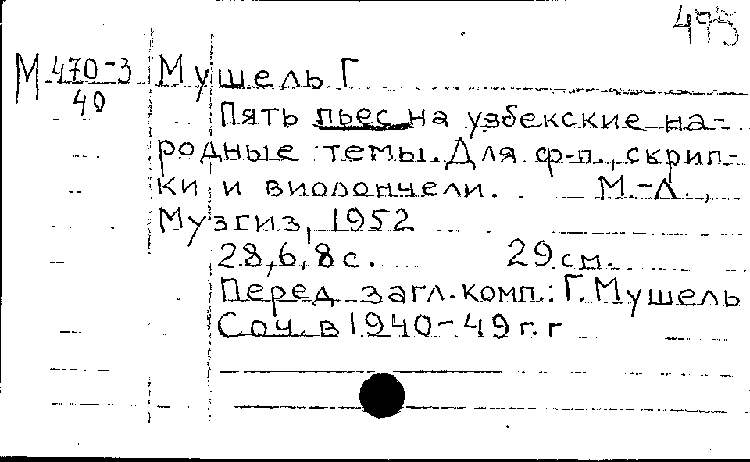 495
М 470-3 Мушель Г
40
Пять пьес на узбекские на-
родные темы. Для ф-п., скрип-
ки и виолончели. М.-Л.,
Музгиз, 1952
28,6,8 с. 29 см.
Перед загл. комп.: Г. Мушель
Соч. в 1940-49 г.г